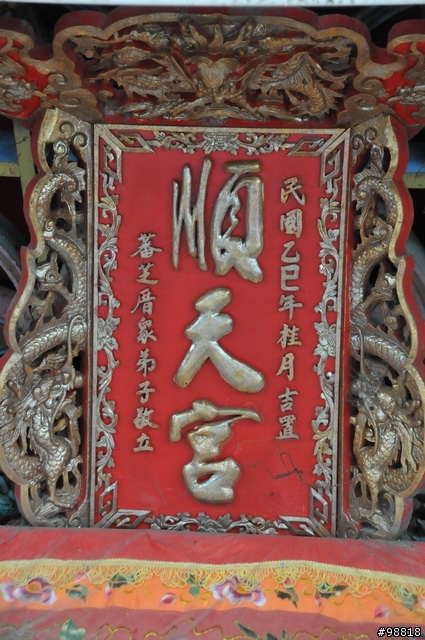 民國乙巳年桂月吉置
順天宮
蕃芝厝眾弟子敬立
#98818